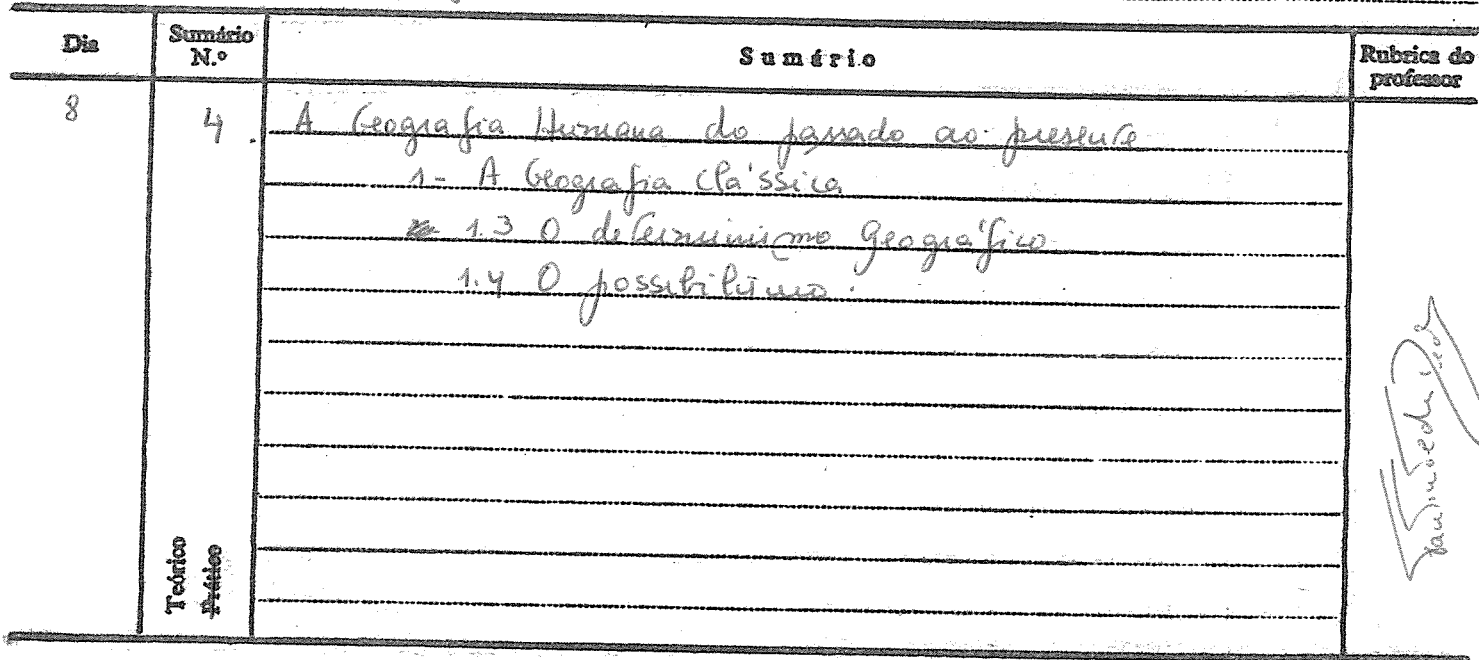 Dia
Sumário N.º
Sumário
Rubrica do professor
8
4.
A Geografia Humana do passado ao presente
1- A Geografia Clássica
1.3 O determinismo Geográfico
1.4 O possibilismo.
Teórico
Prático